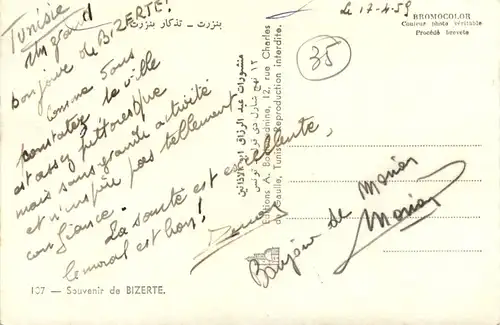 Tunisie
Un grand
bonjour de BIZERTE!
Comme vous
constatez la ville
est assez pittoresque
mais sans grande activité
et n'inspire pas tellement
confiance.
La santé est excellente,
le moral est bon!
بنزرت - تذكار بنزرت
le 17-4-59
BROMOCOLOR
Couleur photo Véritable
Procédé breveté
35
منشورات عبد الرزاق
١٢ نهج شارل دي قول تونس
Editions A. 12, rue Charles
de Gaulle, Tunis. Reproduction interdite.
Bonjour de Monior
Monior
107 — Souvenir de BIZERTE.